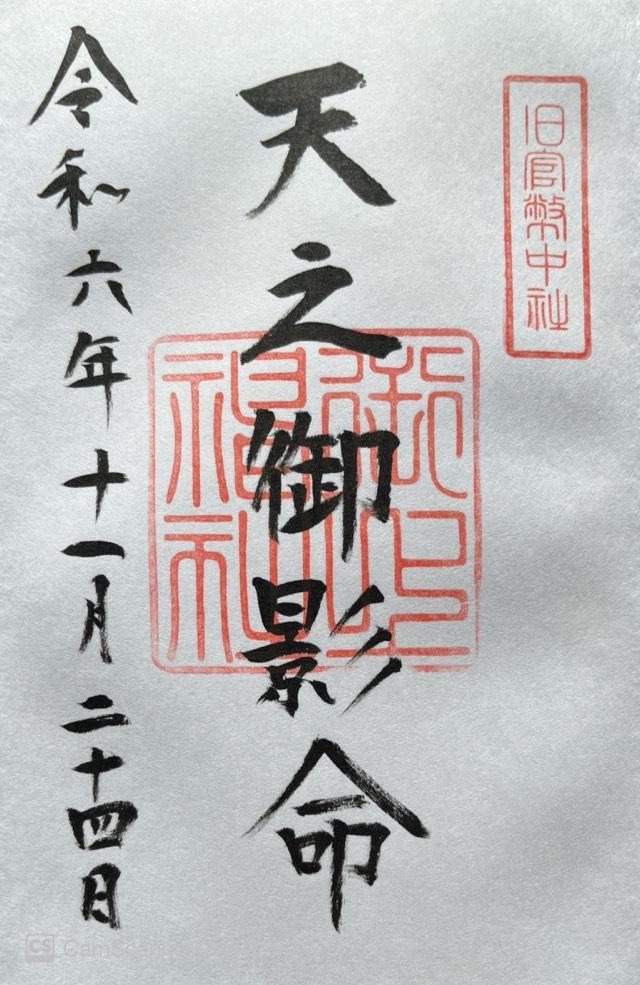 旧官幣中社
天之御影命
令和六年十一月二十四日
CS CamScanner